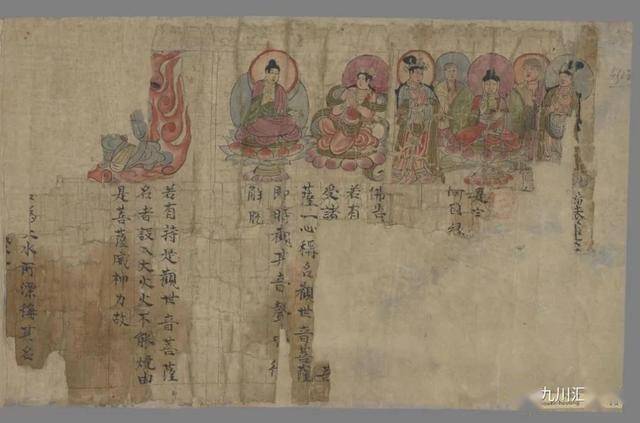 何因緣
佛告
若有
受諸
薩一心稱名觀世音菩薩
即時觀其音聲
解脫
若有持是觀世音菩薩
名者設入大火火不能燒由
是菩薩威神力故
大水所漂稱其名
九川汇